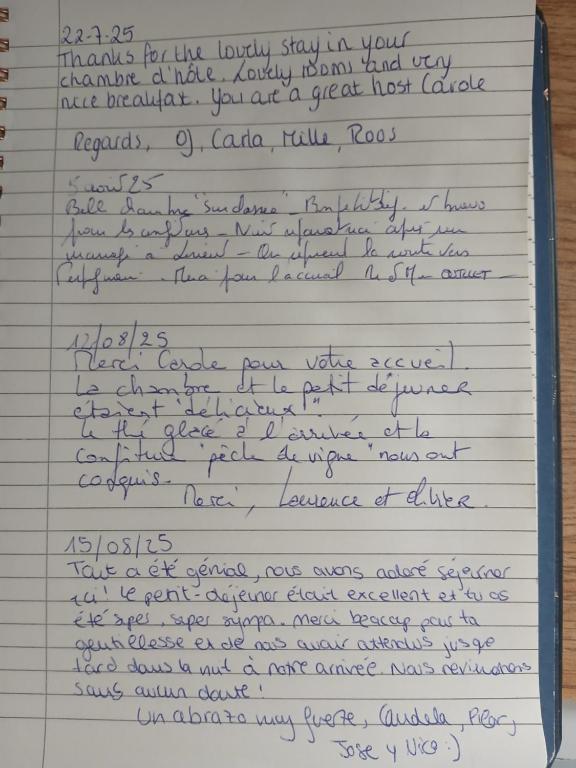 22-7-25
Thanks for the lovely stay in your
chambre d'hôte. Lovely rooms and very
nice breakfat. You are a great host Carole
Regards, OJ, Carla, Mille, Roos
5 août 25
Belle chambre "
pour les confitures - Nuit après un
mariage à - On reprend la route vers
Perpignan. Merci pour l'accueil
12/08/25
Merci Carole pour votre accueil.
La chambre et le petit déjeuner
étaient "délicieux".
Le thé glacé à l'arrivée et la
confiture "pêche de vigne" nous ont
conquis.
Merci, Laurence et Olivier.
15/08/25
Tout a été génial, nous avons adoré séjourner
ici! Le petit-déjeuner était excellent et tu as
été super, super sympa. Merci beacop pour ta
gentillesse et de nous avoir attendus jusqe
tard dans la nuit à notre arrivée. Nous reviendrons
sans aucun doute!
Un abrazo muy fuerte, Candela, Pilar,
Jose y Nico :)